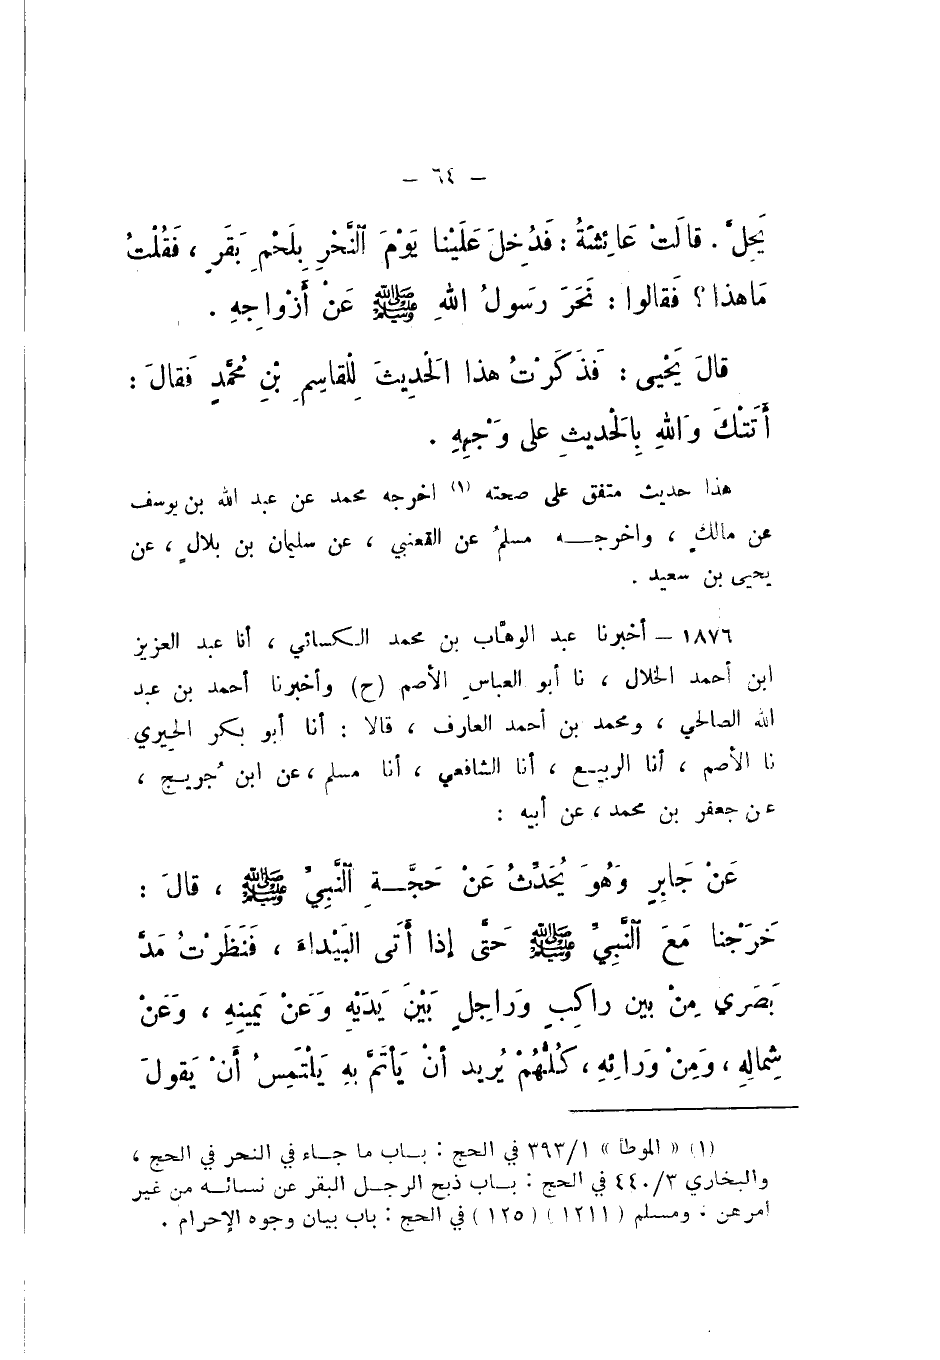 — ٦٤ —
يَحِلَّ . قالَتْ عَائِشَةُ : فَدُخِلَ عَلَيْنا يَوْمَ ٱلنَّحْرِ بِلَحْمِ بَقَرٍ ، فَقُلْتُ
مَاهذا ؟ فَقالوا : نَحَرَ رَسولُ اللهِ ﷺ عَنْ أَزْواجِهِ .
قالَ يَحْيى : فَذَكَرْتُ هذا الَحْديثَ لِلْقاسِمِ بْنِ مُحَمَّدٍ فَقالَ :
أَتَتْكَ وَاللهِ بِالَحْديثِ على وَجْهِهِ .
هذا حديث متفق على صحته (١) اخرجه محمد عن عبد الله بن يوسف
عن مالكٍ ، واخرجه مسلمُ عن القعنبي ، عن سليمان بن بلالٍ ، عن
يحيى بن سعيد .
١٨٧٦ – أخبرنا عبد الوهَّاب بن محمد الكسائي ، أنا عبد العزيز
ابن أحمد الخلال ، نا أبو العباسِ الأصم (ح) وأخبرنا أحمد بن عبد
الله الصالحي ، ومحمد بن أحمد العارف ، قالا : أنا أبو بكر الحيري
نا الأصم ، أنا الربيع ، أنا الشافعي ، أنا مسلم ، عن ابن جُريج ،
عن جعفر بن محمد ، عن أبيه :
عَنْ جَابِرٍ وَهُوَ يُحَدِّثُ عَنْ حَجَّةِ ٱلنَّبِيِّ ﷺ ، قالَ :
خَرَجْنا مَعَ ٱلنَّبِيِّ ﷺ حَتَّى إذا أَتَى البَيْداءَ ، فَنَظَرْتُ مَدَّ
بَصَري مِنْ بين راكِبٍ وَراجِلٍ بَيْنَ يَدَيْهِ وَعَنْ يَمينِهِ ، وَعَنْ
شِمالِهِ ، وَمِنْ وَرائِهِ ، كُلُّهُمْ يُريد أنْ يَأْتَمَّ بِهِ يَلْتَمِسُ أَنْ يَقولَ
(١) « الموطأ » ٣٩٣/١ في الحج : باب ما جاء في النحر في الحج ،
والبخاري ٤٤٠/٣ في الحج : باب ذبح الرجل البقر عن نسائه من غير
أمرهن ، ومسلم ( ١٢١١ ) ( ١٢٥ ) في الحج : باب بيان وجوه الإحرام .